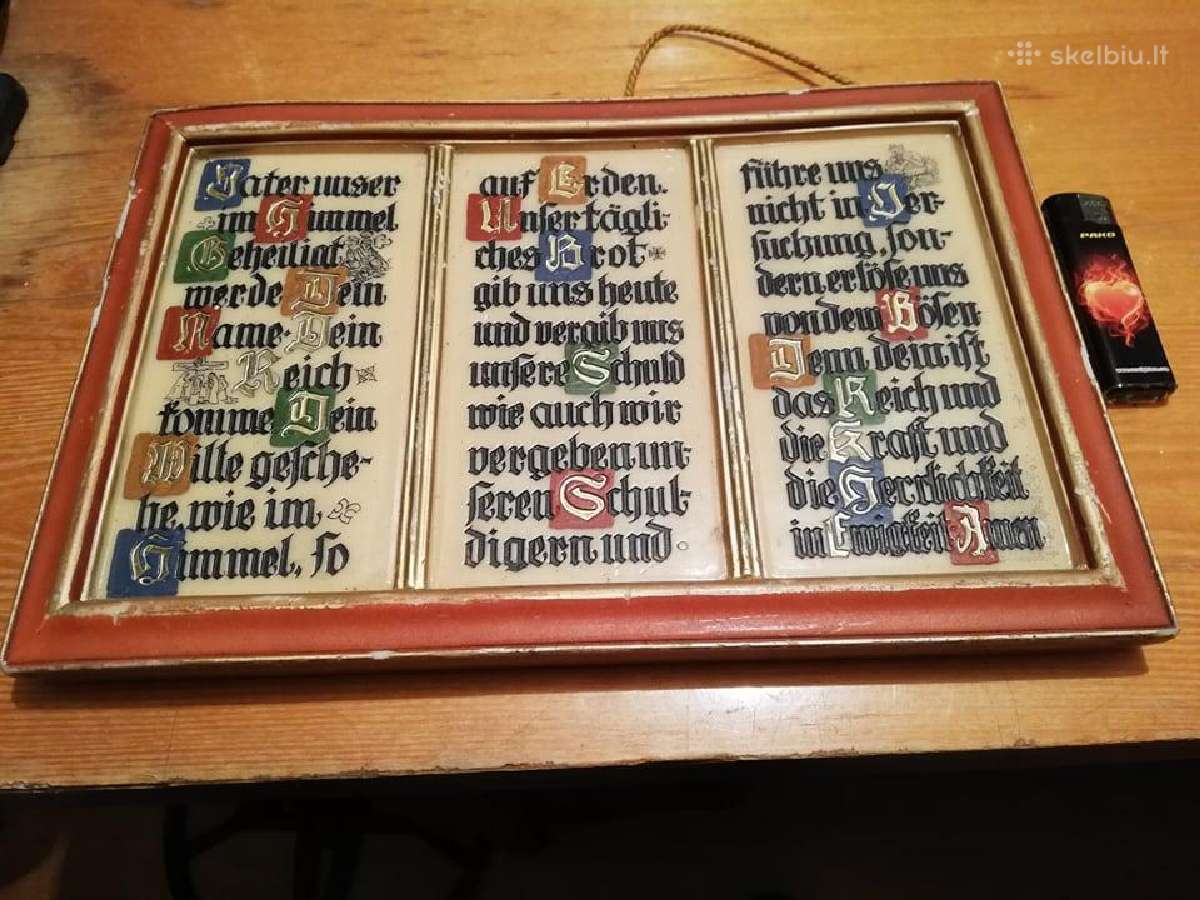 skelbiu.lt
Vater unser
im Himmel
Geheiligt
werde Dein
Name. Dein
Reich
komme Dein
Wille gesche-
he, wie im
Himmel, so
auf Erden.
Unser tägli-
ches Brot
gib uns heute
und vergib uns
unsere Schuld
wie auch wir
vergeben un-
seren Schul-
digern und
führe uns
nicht in Ver-
suchung, son-
dern erlöse uns
von dem Bösen
Denn dein ist
das Reich und
die Kraft und
die Herrlichkeit
in Ewigkeit Amen
PRKO